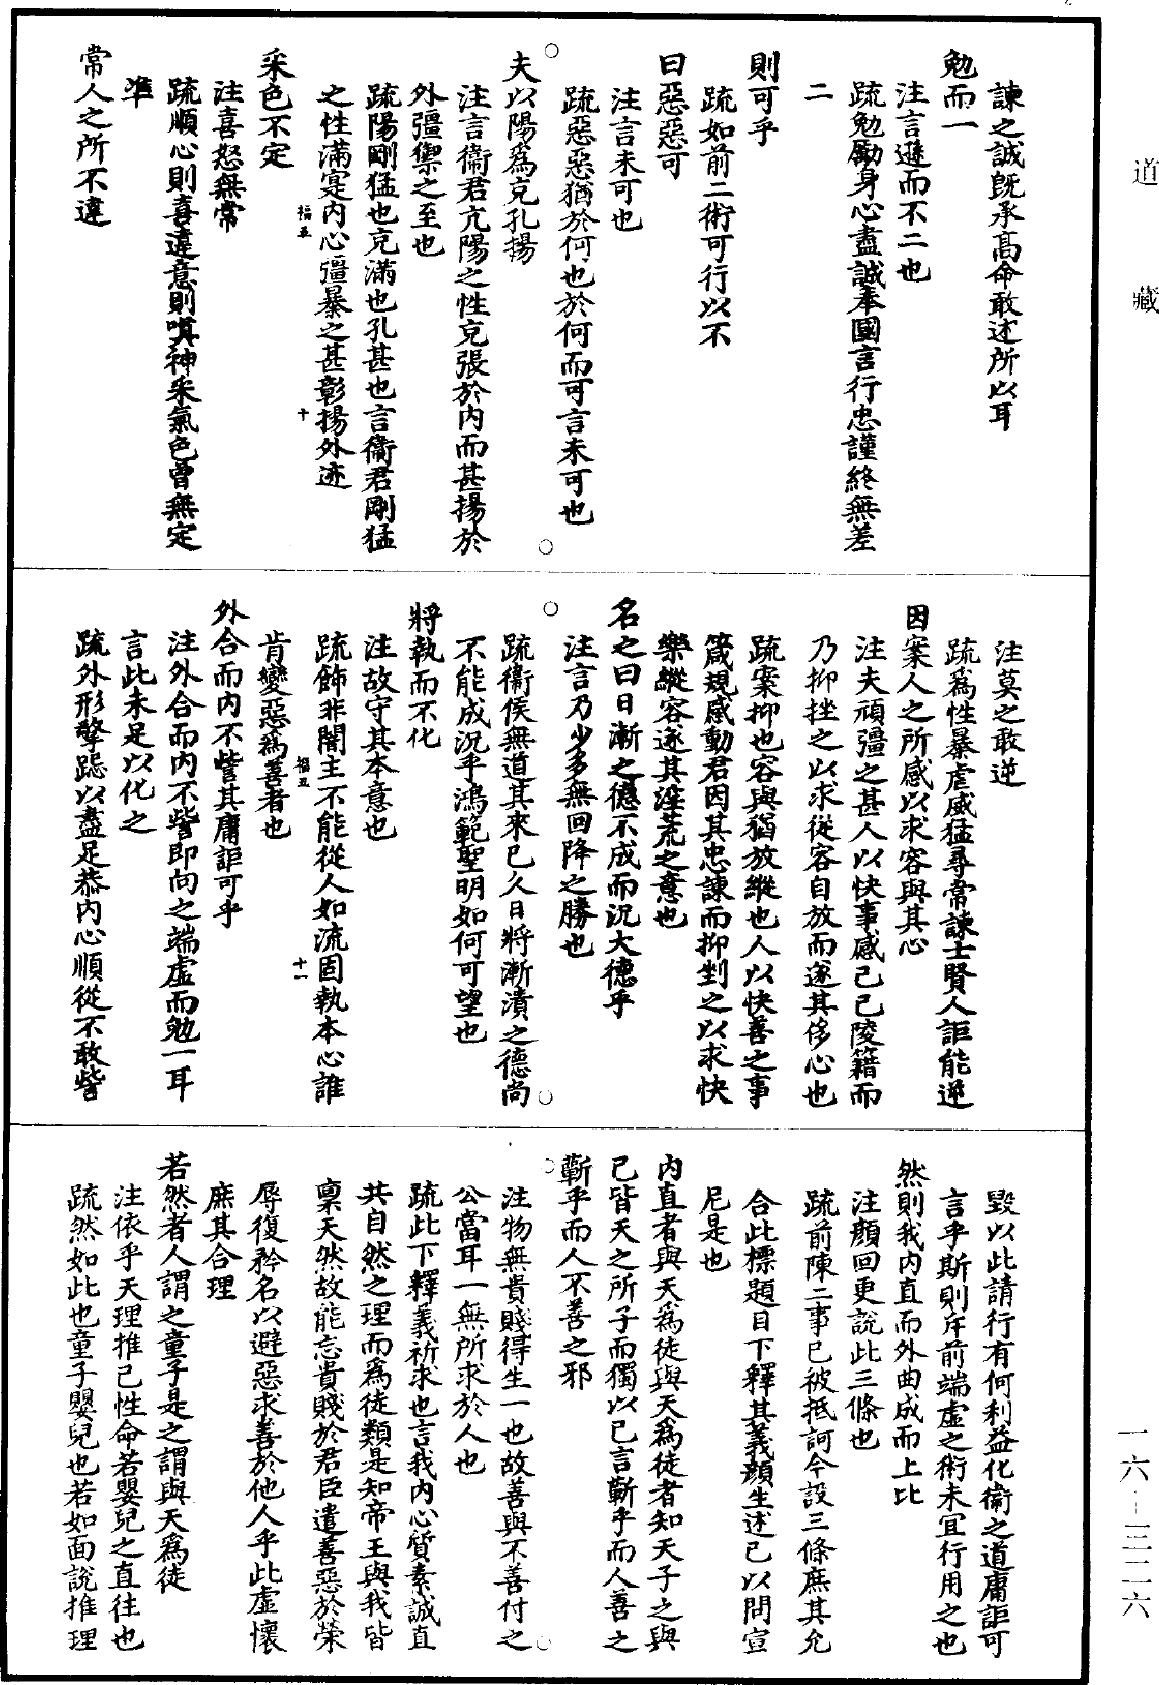 道藏
諫之誠既承高命敢述所以耳
勉而一
注言遜而不二也
疏勉勵身心盡誠奉國言行忠謹終無差
二
則可乎
疏如前二術可行以不
曰惡惡可
注言未可也
疏惡惡猶於何也於何而可言未可也
夫以陽為充孔揚
注言衞君亢陽之性充張於内而甚揚於
外彊禦之至也
疏陽剛猛也充滿也孔甚也言衞君剛猛
之性滿寔内心彊暴之甚彰揚外迹
福五
十
采色不定
注喜怒無常
疏順心則喜違意則嗔神采氣色曾無定
準
常人之所不違
注莫之敢逆
疏為性暴虐威猛尋常諫士賢人詎能逆
因案人之所感以求容與其心
注夫頑彊之甚人以快事感己己陵籍而
乃抑挫之以求從容自放而遂其侈心也
疏案抑也容與猶放縱也人以快善之事
箴規感動君因其忠諫而抑剉之以求快
樂縱容遂其淫荒之意也
名之曰日漸之德不成而況大德乎
注言乃少多無回降之勝也
疏衞侯無道其來已久日將漸漬之德尚
不能成況乎鴻範聖明如何可望也
將執而不化
注故守其本意也
疏飾非闇主不能從人如流固執本心誰
福五
十一
肯變惡為善者也
外合而内不訾其庸詎可乎
注外合而内不訾即向之端虛而勉一耳
言此未足以化之
疏外形擎跽以盡足恭内心順從不敢訾
毁以此請行有何利益化衞之道庸詎可
言乎斯則斥前端虛之術未宜行用之也
然則我内直而外曲成而上比
注顔回更說此三條也
疏前陳二事已被抵訶今設三條庶其允
合此標題目下釋其義顔生述己以問宣
尼是也
内直者與天為徒與天為徒者知天子之與
己皆天之所子而獨以已言蘄乎而人善之
蘄乎而人不善之邪
注物無貴賤得生一也故善與不善付之
公當耳一無所求於人也
疏此下釋義祈求也言我内心質素誠直
共自然之理而為徒類是知帝王與我皆
稟天然故能忘貴賤於君臣遣善惡於榮
辱復矜名以避惡求善於他人乎此虛懷
庶其合理
若然者人謂之童子是之謂與天為徒
注依乎天理推己性命若嬰兒之直往也
疏然如此也童子嬰兒也若如面說推理
一六·三二六